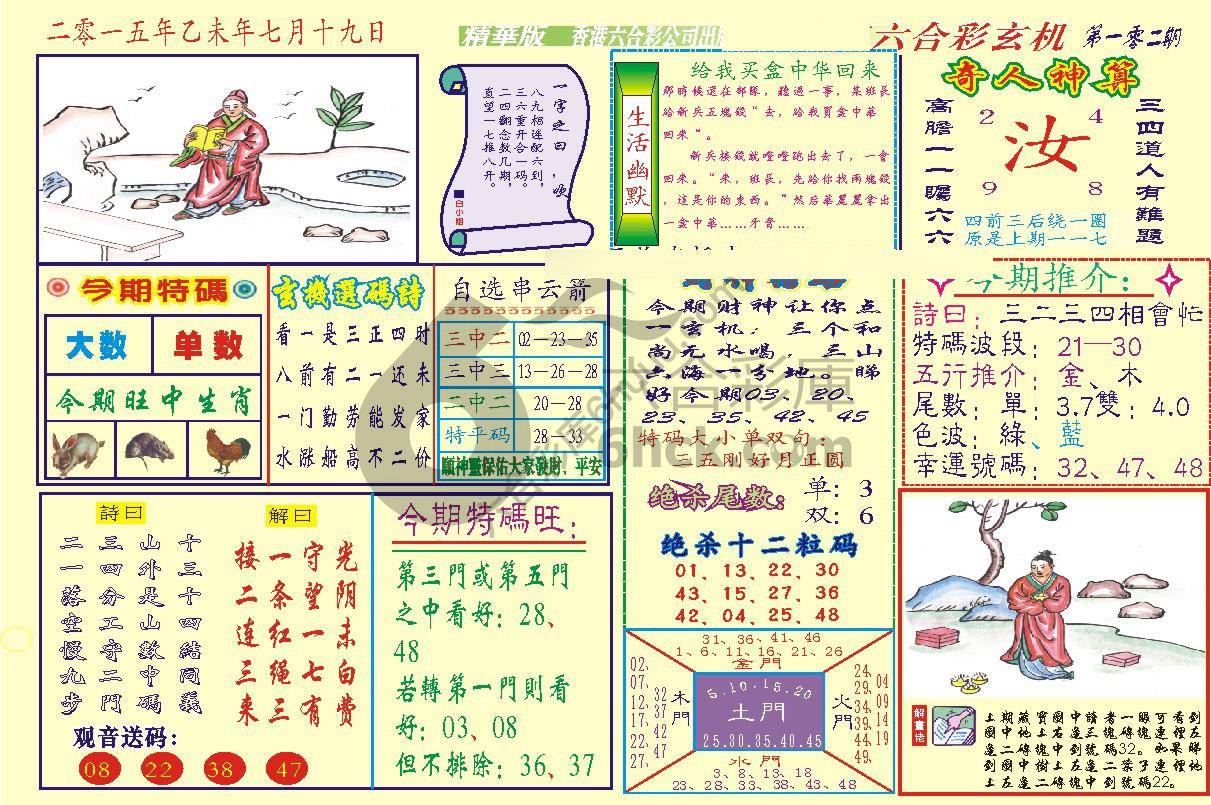 二零一五年乙未年七月十九日
精華版 香港六合彩公司出
六合彩玄机 第一零二期
一字之曰:吹
八九相连配六到,
三六重开合一码。
二四翻念教几期,
直望一七推八开。
白小姐
生活幽默
给我买盒中华回来
那時候還在部隊,聽過一事,某班長
給新兵五塊錢“去,給我買盒中華
回來“。
新兵接錢就噔噔跑出去了,一會
回來。“来,班長,先給你找兩塊錢
,這是你的東西。“然后華麗麗拿出
一盒中華……牙膏……
奇人神算
高膽一一矚六六
2 4
汝
9 8
三四道人有難題
四前三后绕一圈
原是上期一一七
今期特碼
大数 单数
今期旺中生肖
玄機選碼詩
看一是三正四时
八前有二一还未
一门勤劳能发家
水涨船高不二价
自选串云箭
三中二 02—23—35
三中三 13—26—28
二中二 20—28
特平码 28—33
願神靈保佑大家發財、平安
今期财神让你点
一玄机:三个和
尚无水喝,三山
上海一分地。睇
好今期03、20、
23、35、42、45
特码大小单双句:
三五刚好月正圆
绝杀尾数: 单: 3
双: 6
绝杀十二粒码
01、13、22、30
43、15、27、36
42、04、25、48
今期推介:
詩曰: 三二三四相會忙
特碼波段: 21—30
五行推介: 金、木
尾數: 單: 3.7雙: 4.0
色波: 綠、藍
幸運號碼: 32、47、48
詩曰
十三十四結同義
山外是山數中碼
三四分工守二門
二一落空慢九步
解曰
光阴未白费
守望一七有
一条红绳三
接二连三来
观音送码:
08 22 38 47
今期特碼旺:
第三門或第五門
之中看好: 28、
48
若轉第一門則看
好: 03、08
但不排除: 36、37
31、36、41、46
1、6、11、16、21、26
金門
02、07、12、17、22、27、
32、37、42、47
木門
5.10.15.20
土門
25.30.35.40.45
火門
24、29、34、39、44、49、
04、09、14、19
水門
3、8、13、18
23、28、33、38、43、48
解畫佬
上期藏寶圖中讀者一眼可看到
圖中地上右邊三塊磚塊連裡左
邊二磚塊中到號碼32。如果睇
到圖中樹上左邊二葉子連裡地
上左邊二磚塊中到號碼22。
六合彩庫
6hck.com